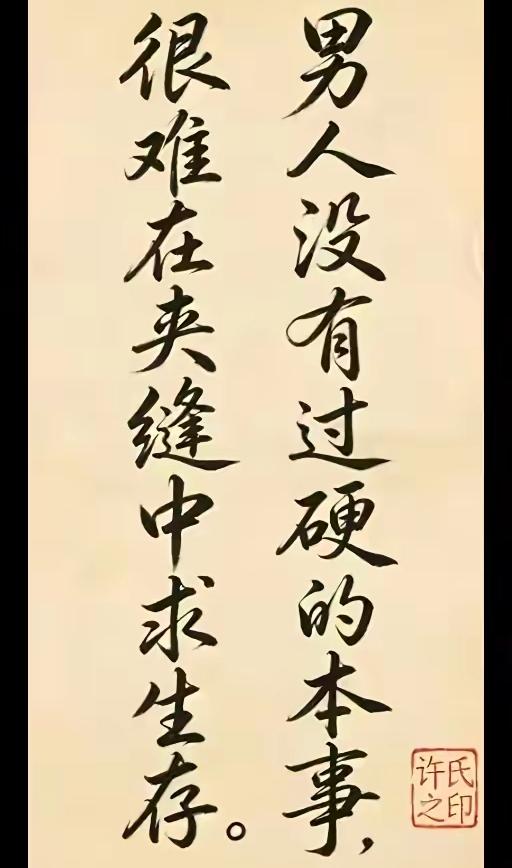 男人没有过硬的本事，
很难在夹缝中求生存。
许氏之印